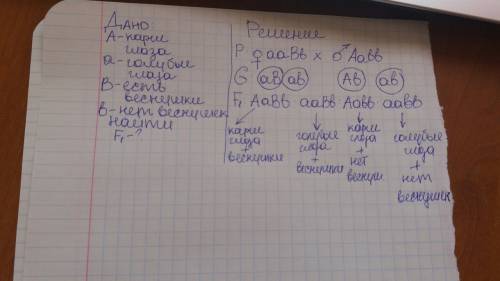 Дано
А-карие
глаза
а-голубые
глаза
В-есть
веснушки
в-нет веснушек
найти
F₁-?
Решение
Р ♀ ааВв х ♂ Аавв
G аВ ав Ав ав
F₁ АаВв ааВв Аавв аавв
карие глаза + веснушки
голубые глаза + веснушки
карие глаза + нет
голубые глаза + нет веснушек